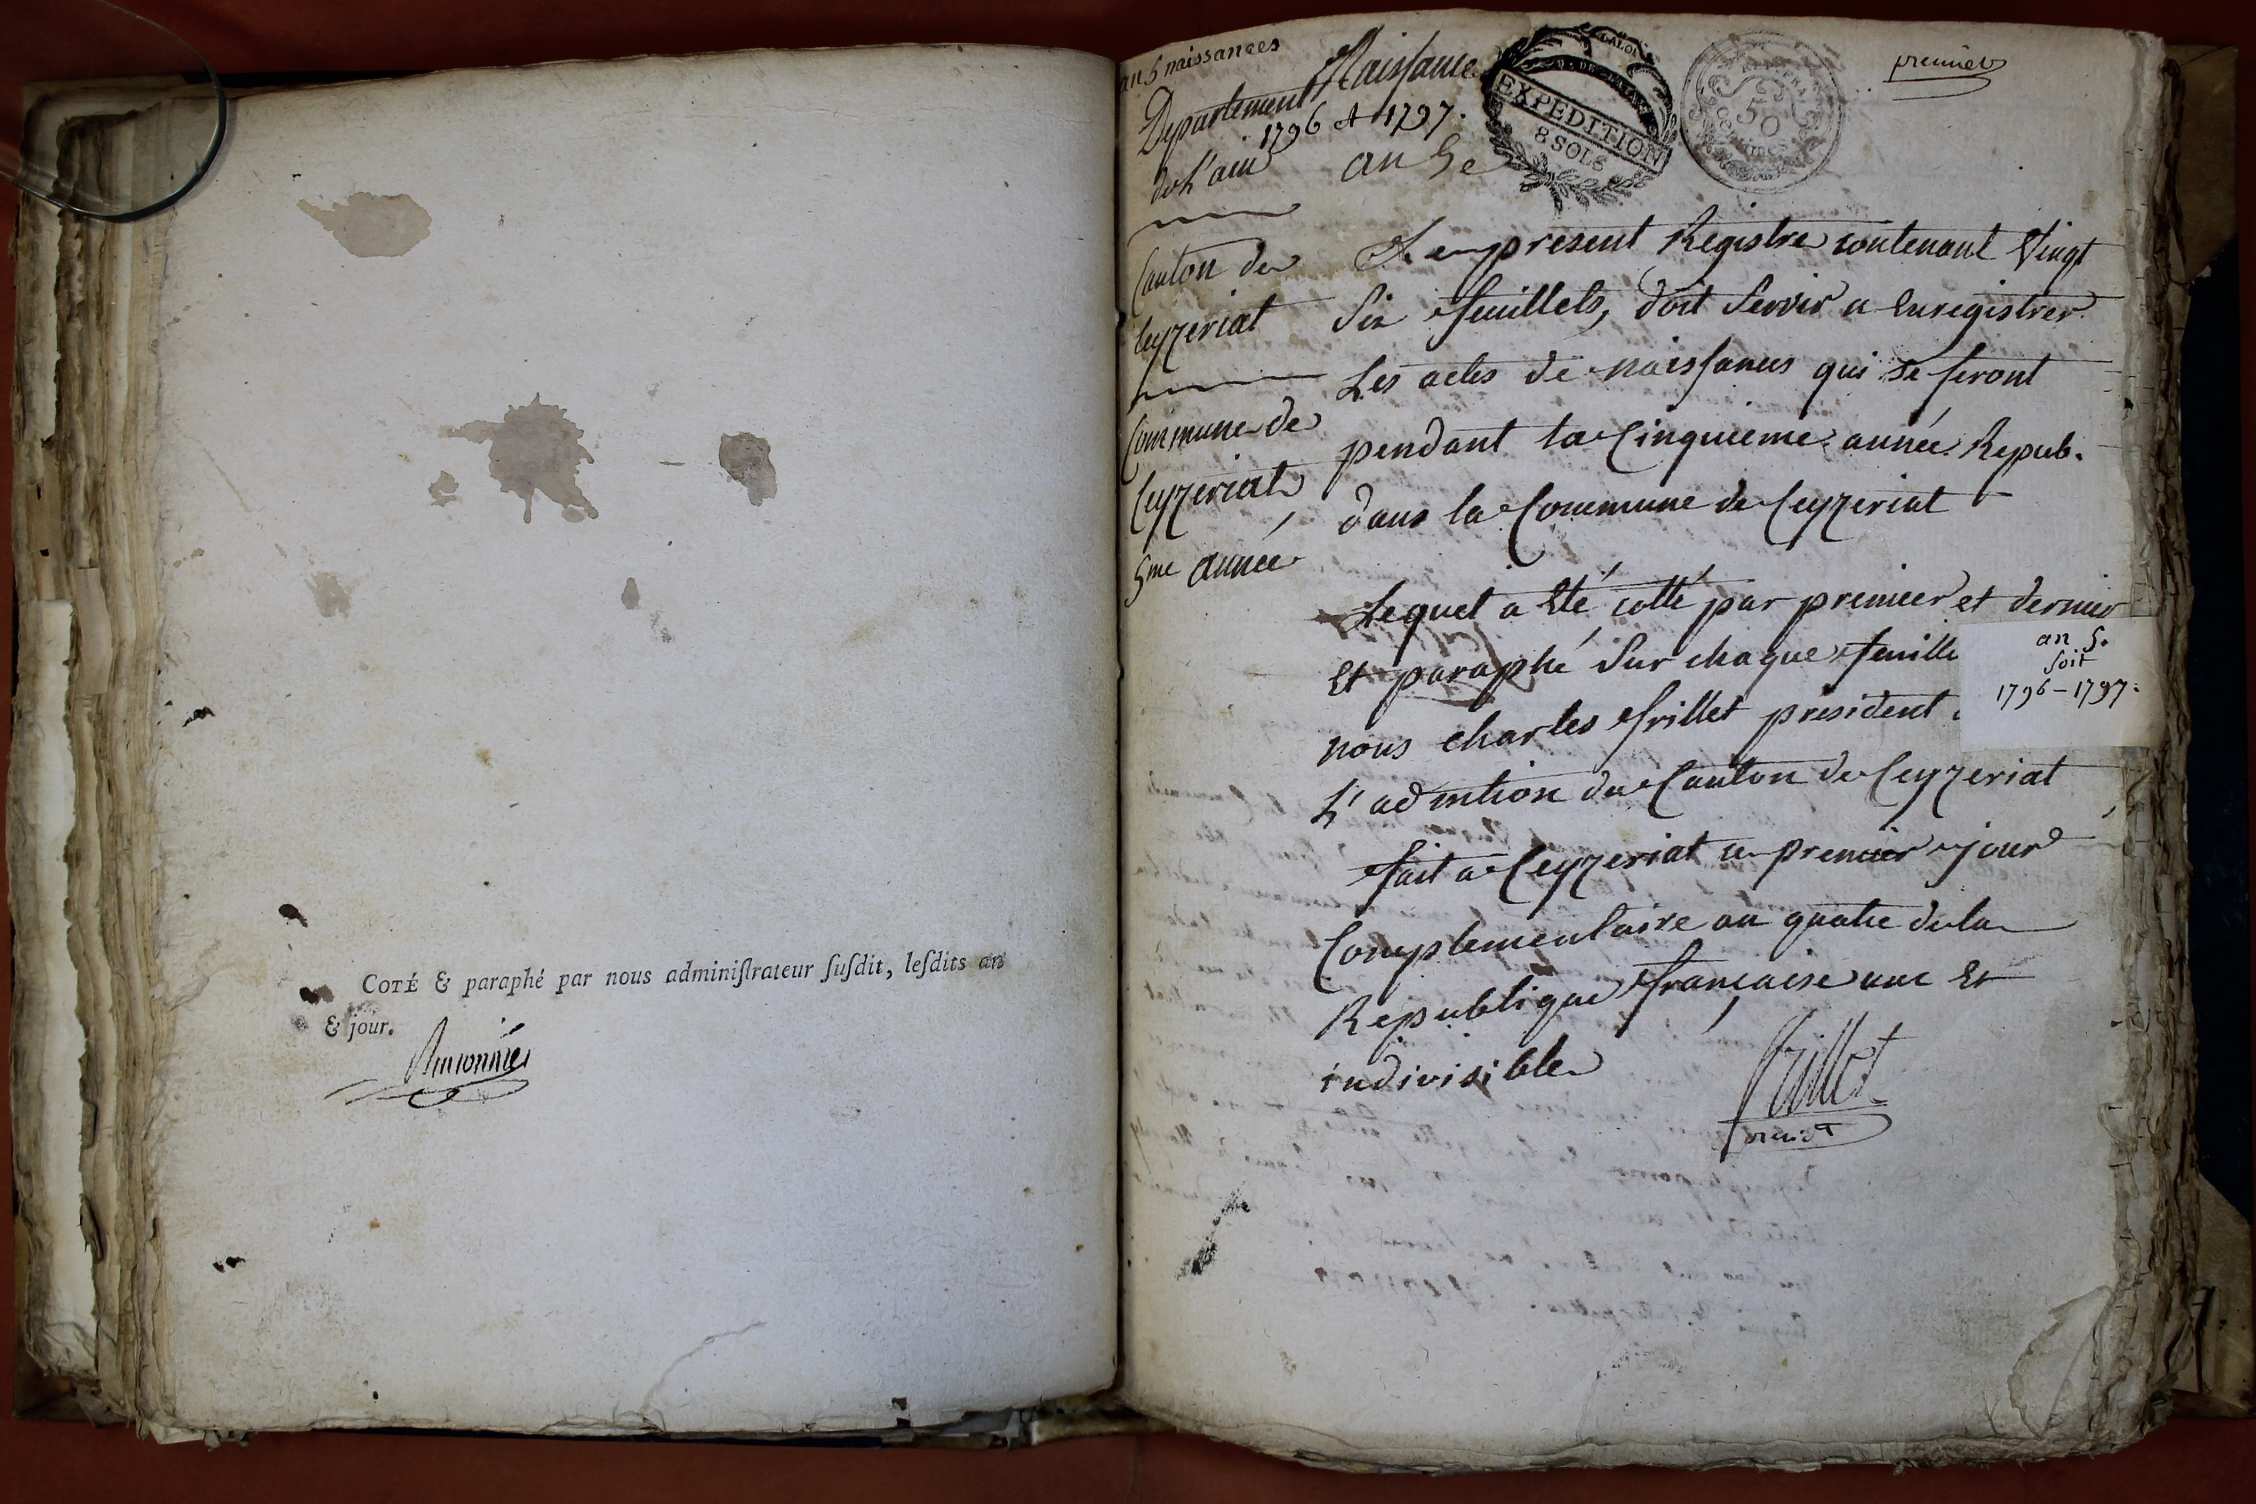 COTÉ & paraphé par nous adminiſtrateur ſuſdit, leſdits an
& jour.
an 5 naissances
Naissance
1796 et 1797.
an 5e
Departement
de L'ain
Canton de
Ceyzeriat
Commune de
Ceyzeriat
5me année
EXPEDITION
8 SOLS
50
Centimes
premier
Le present Registre contenant Vingt
Six feuillets, doit Servir a Enregistrer
Les actes de naissances qui se feront
pendant la Cinquieme année Repub.
dans la Commune de Ceyzeriat
Lequel a Eté cotté par premier et dernier
Et paraphé Sur chaque feuille
nous charles frillet president
L'admtion du Canton de Ceyzeriat
fait a Ceyzeriat ce premier jour
Complementaire an quatre de la
Republique française une Et
indivisible
Frillet
an 5.
soit
1796-1797.